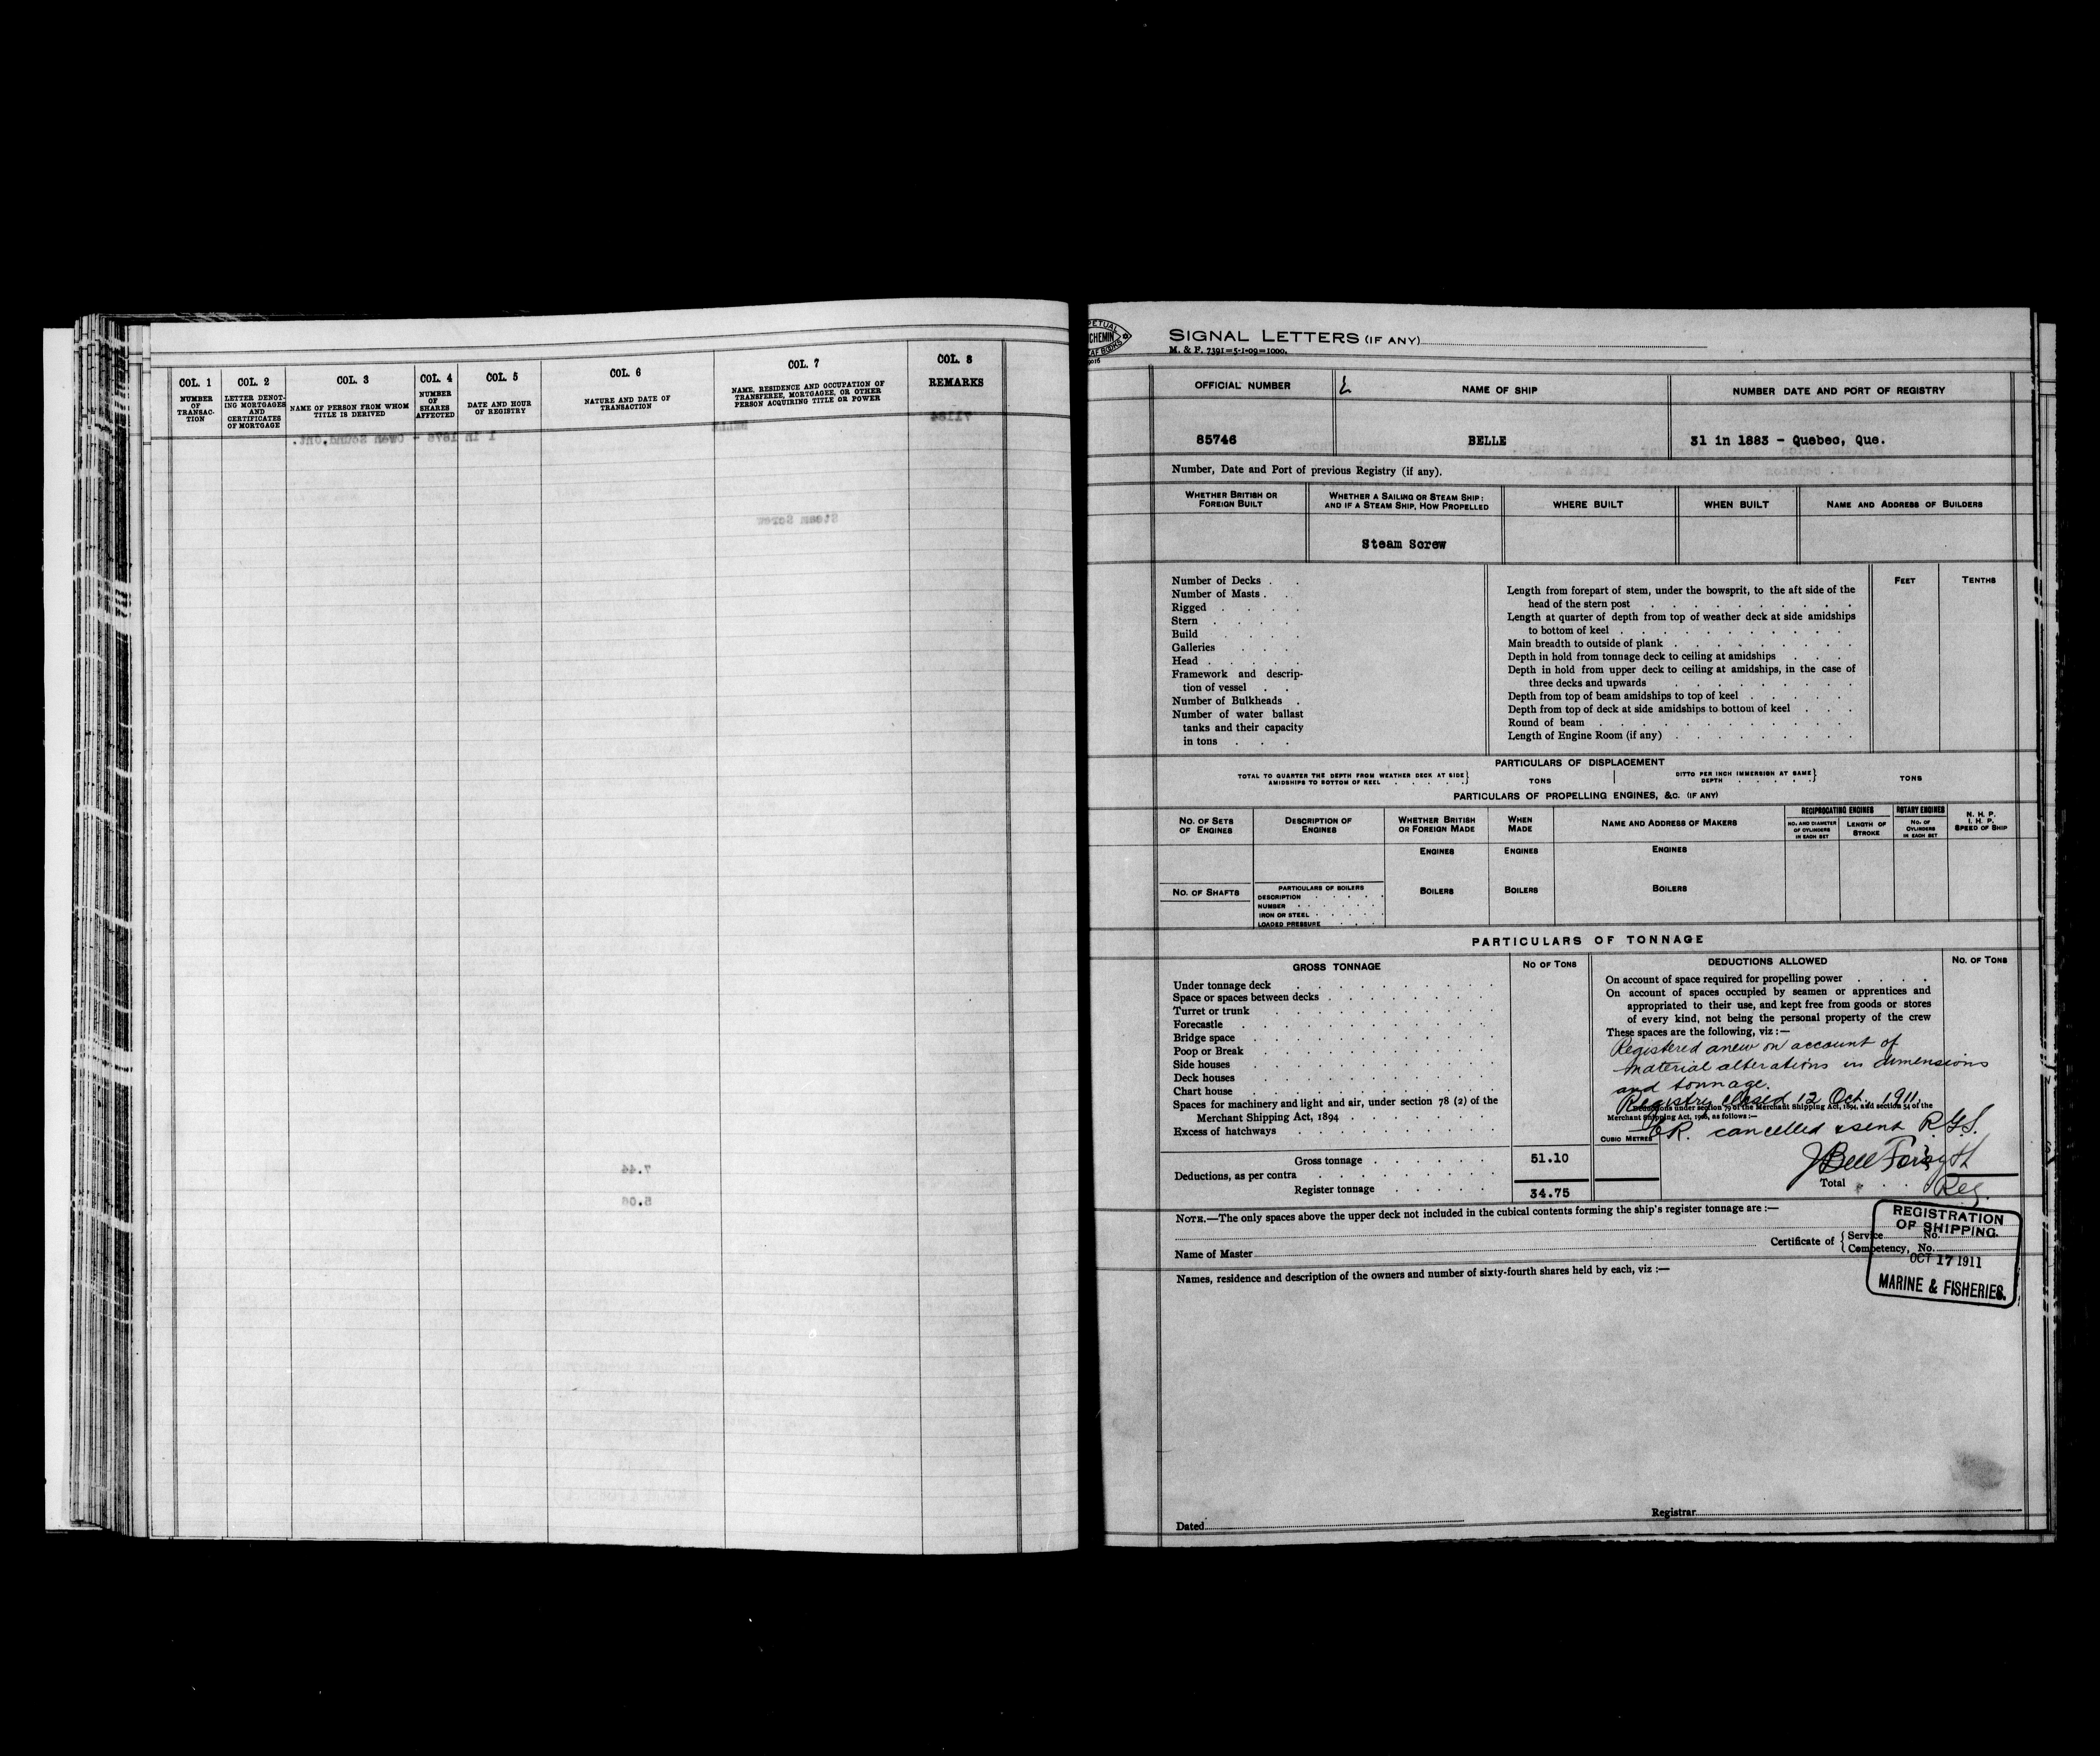 COL. 1
NUMBER
OF
TRANSAC-
TION
COL. 2
LETTER DENOT-
ING MORTGAGES
AND
CERTIFICATES
OF MORTGAGE
COL. 3
NAME OF PERSON FROM WHOM
TITLE IS DERIVED
COL. 4
NUMBER
OF
SHARES
AFFECTED
COL. 5
DATE AND HOUR
OF REGISTRY
COL. 6
NATURE AND DATE OF
TRANSACTION
COL. 7
NAME, RESIDENCE AND OCCUPATION OF
TRANSFEREE, MORTGAGEE, OR OTHER
PERSON ACQUIRING TITLE OR POWER
COL. 8
REMARKS
71184
BELLE
1 in 1876 - Owen Sound, Ont.
Steam Screw
7.44
5.06
SIGNAL LETTERS (IF ANY)
M. & F. 7391=5-1-09=1000.
OFFICIAL NUMBER
NAME OF SHIP
NUMBER DATE AND PORT OF REGISTRY
85746
BELLE
31 in 1883 - Quebec, Que.
Number, Date and Port of previous Registry (if any).
WHETHER BRITISH OR
FOREIGN BUILT
WHETHER A SAILING OR STEAM SHIP:
AND IF A STEAM SHIP, HOW PROPELLED
WHERE BUILT
WHEN BUILT
NAME AND ADDRESS OF BUILDERS
Steam Screw
Number of Decks . .
Number of Masts . .
Rigged . . . .
Stern . . . .
Build . . . .
Galleries . . .
Head . . . .
Framework and descrip-
tion of vessel . .
Number of Bulkheads .
Number of water ballast
tanks and their capacity
in tons . . .
Length from forepart of stem, under the bowsprit, to the aft side of the
head of the stern post
Length at quarter of depth from top of weather deck at side amidships
to bottom of keel
Main breadth to outside of plank
Depth in hold from tonnage deck to ceiling at amidships
Depth in hold from upper deck to ceiling at amidships, in the case of
three decks and upwards
Depth from top of beam amidships to top of keel
Depth from top of deck at side amidships to bottom of keel
Round of beam
Length of Engine Room (if any)
FEET
TENTHS
PARTICULARS OF DISPLACEMENT
TOTAL TO QUARTER THE DEPTH FROM WEATHER DECK AT SIDE
AMIDSHIPS TO BOTTOM OF KEEL
TONS
DITTO PER INCH IMMERSION AT SAME
DEPTH
TONS
PARTICULARS OF PROPELLING ENGINES, &C. (IF ANY)
NO. OF SETS
OF ENGINES
DESCRIPTION OF
ENGINES
WHETHER BRITISH
OR FOREIGN MADE
WHEN
MADE
NAME AND ADDRESS OF MAKERS
RECIPROCATING ENGINES
NO. AND DIAMETER
OF CYLINDERS
IN EACH SET
LENGTH OF
STROKE
ROTARY ENGINES
NO. OF
CYLINDERS
IN EACH SET
N. H. P.
I. H. P.
SPEED OF SHIP
ENGINES
ENGINES
ENGINES
NO. OF SHAFTS
PARTICULARS OF BOILERS
DESCRIPTION
NUMBER
IRON OR STEEL
LOADED PRESSURE
BOILERS
BOILERS
BOILERS
PARTICULARS OF TONNAGE
GROSS TONNAGE
NO OF TONS
DEDUCTIONS ALLOWED
NO. OF TONS
Under tonnage deck
Space or spaces between decks
Turret or trunk
Forecastle
Bridge space
Poop or Break
Side houses
Deck houses
Chart house
Spaces for machinery and light and air, under section 78 (2) of the
Merchant Shipping Act, 1894
Excess of hatchways
Gross tonnage
51.10
Deductions, as per contra
Register tonnage
34.75
On account of space required for propelling power
On account of spaces occupied by seamen or apprentices and
appropriated to their use, and kept free from goods or stores
of every kind, not being the personal property of the crew
These spaces are the following, viz :—
Registered anew on account of
material alterations in dimensions
and tonnage.
Registry closed 12 Oct. 1911.
Deductions under section 79 of the Merchant Shipping Act, 1894, and section 54 of the
Merchant Shipping Act, 1906, as follows :—
CUBIC METRES
CR. cancelled & sent R.G.S.
J Bell Forsyth
Total
Reg.
NOTE.—The only spaces above the upper deck not included in the cubical contents forming the ship's register tonnage are :—
Name of Master
Certificate of { Service No.
Competency, No.
REGISTRATION
OF SHIPPING.
OCT 17 1911
MARINE & FISHERIES.
Names, residence and description of the owners and number of sixty-fourth shares held by each, viz :—
Dated
Registrar